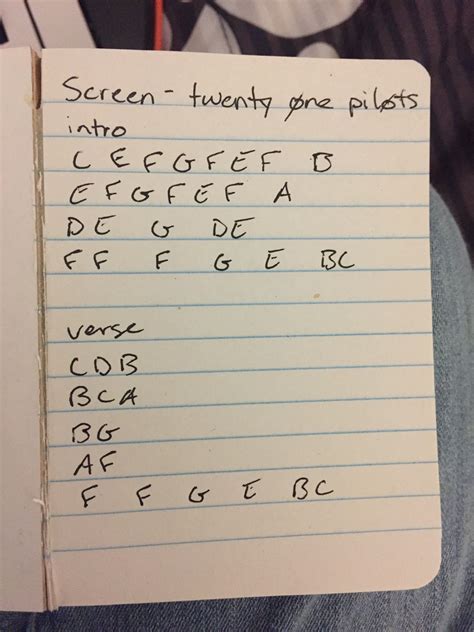 Screen - twenty øne piløts
intro
C E F G F E F B
E F G F E F A
D E G D E
F F F G E B C
verse
C D B
B C A
B G
A F
F F G E B C